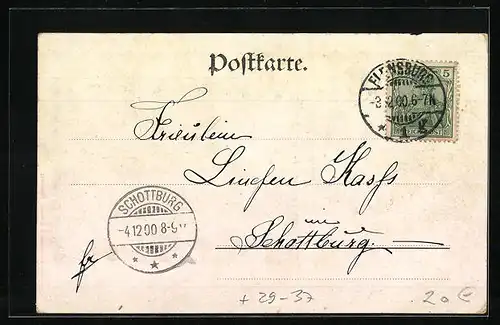 Postkarte.
FLENSBURG
5
-3 12 00. 6-7N.
* 1 g.
Fräulein
Linchen Kass
in
Schottburg.
SCHOTTBURG
-4 12 00 8-9V
* * *
fr
+ 29-37
20 €